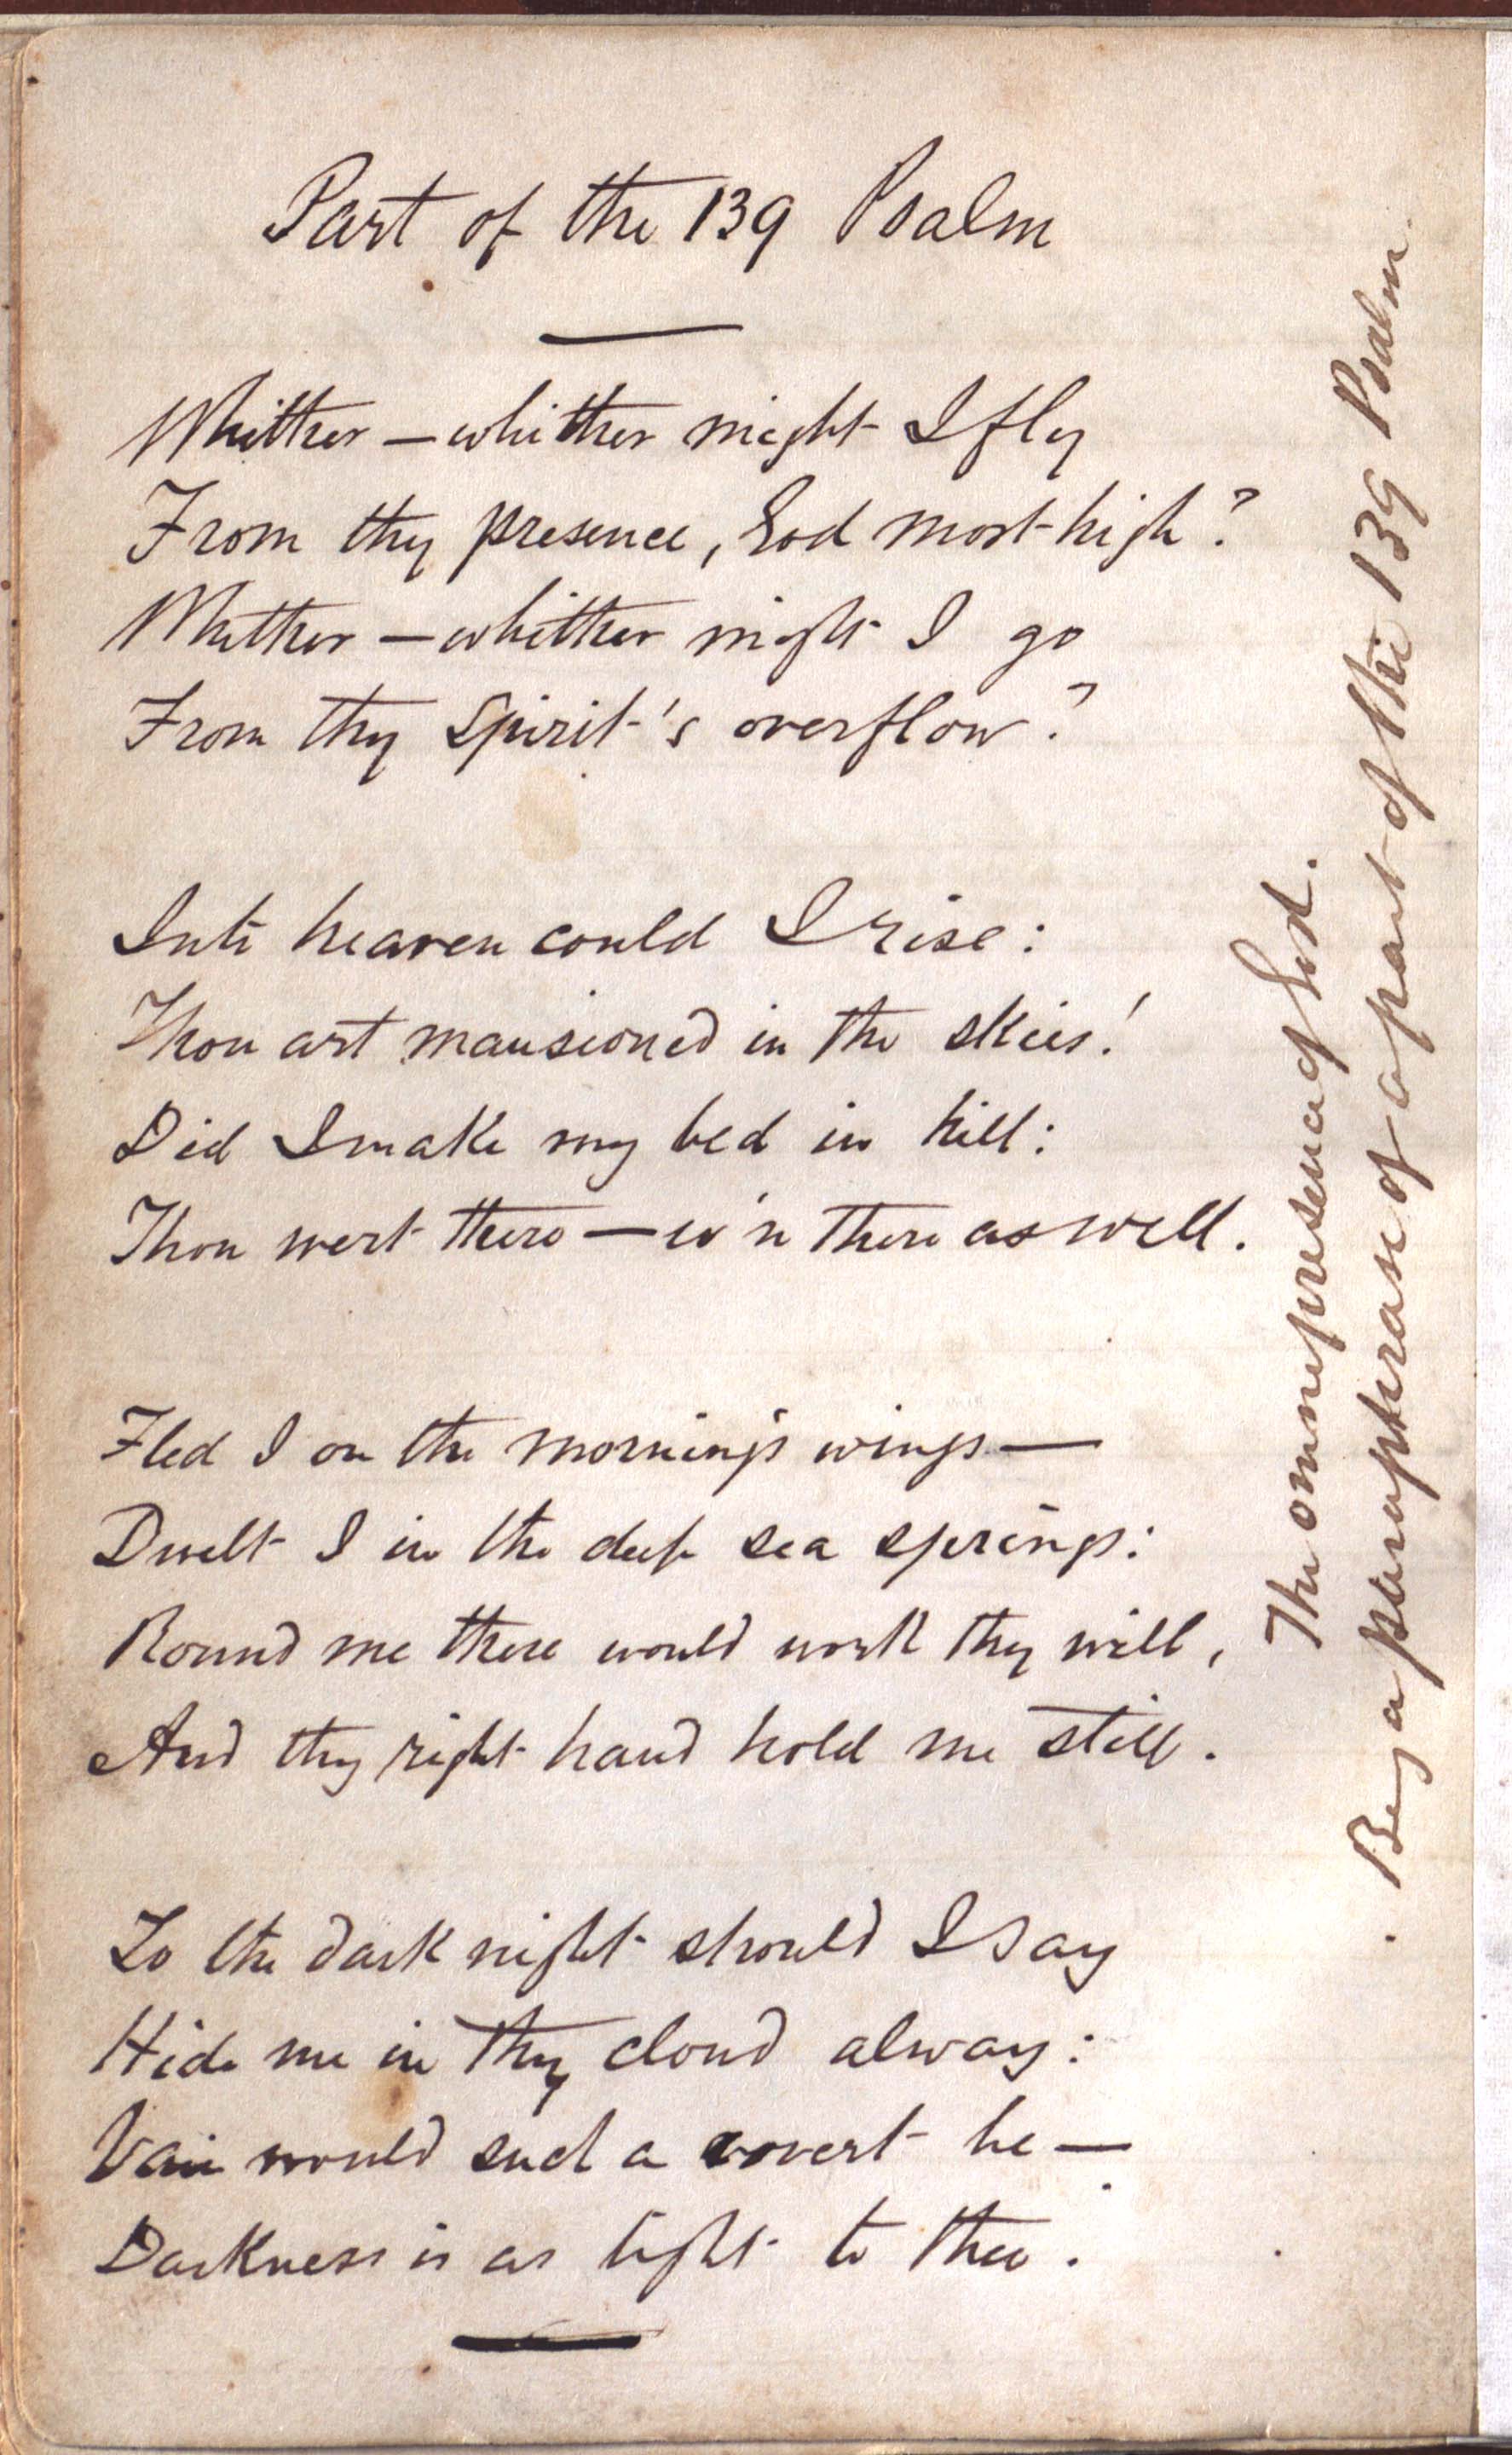 Part of the 139 Psalm
Whither — whither might I fly
From thy presence, God most high?
Whither — whither might I go
From thy spirit's overflow?
Into heaven could I rise:
Thou art mansioned in the skies!
Did I make my bed in hell:
Thou wert there — ev'n there as well.
Fled I on the morning's wings —
Dwelt I in the deep sea springs:
Round me there would work thy will,
And thy right hand hold me still.
To the dark night should I say
Hide me in thy cloud alway:
Vain would such a covert be —
Darkness is as light to thee.
The omnipresence of God.
Being a paraphrase of a part of the 139 Psalm.